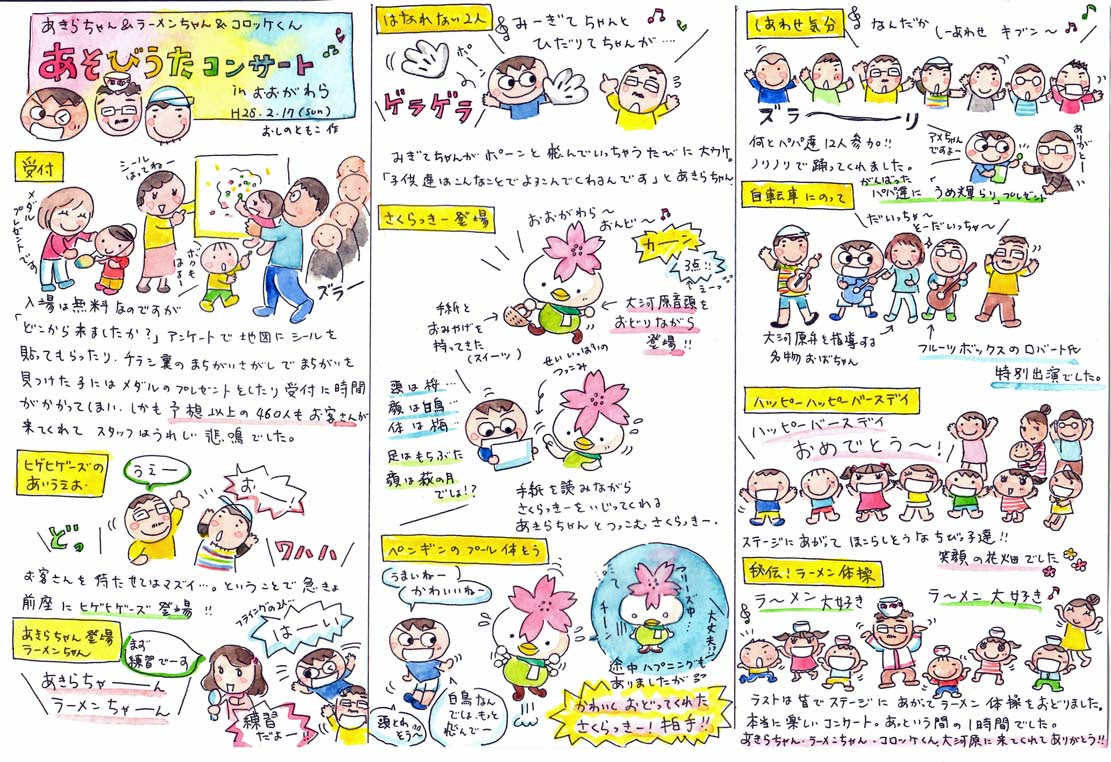 あきらちゃん&ラーメンちゃん&コロッケくん
あそびうたコンサート
in おおがわら
H25.2.17(sun)
おしのともこ作
受付
シール
はってねー
メダル
プレゼントでーす
ボクも
はるー
ズラー
入場は無料なのですが
「どこから来ましたか?」アンケートで地図にシールを
貼ってもらったり、チラシ裏のまちがいさがしでまちがいを
見つけた子にはメダルのプレゼントをしたり受付に時間
がかかってしまい、しかも予想以上の460人もお客さんが
来てくれてスタッフはうれしい悲鳴でした。
ヒゲヒゲーズの
あいうえお
うえー
おー
どっ
ワハハ
お客さんを待たせてはマズイ…。ということで急きょ
前座にヒゲヒゲーズ登場!!
あきらちゃん登場
ラーメンちゃん
まず
練習でーす
あきらちゃーーん
ラーメンちゃーん
フライングの2人
はーい
練習
だよー!!
はなれない2人
みーぎてちゃんと
ひだりてちゃんが…
ポーン
ゲラゲラ
みぎてちゃんがポーンと飛んでいっちゃうたびに大ウケ。
「子供達はこんなことでよろこんでくれるんです」とあきらちゃん
さくらっきー登場
おおがわら〜
おんど〜
カーン
3点!!
手紙と
おみやげを
持ってきた
(スイーツ)
大河原音頭を
おどりながら
登場!!
せいいっぱいの
つっこみ
頭は桜…
顔は白鳥…
体は梅…
足はもちぶた
頭は萩の月
でしょ!?
手紙を読みながら
さくらっきーをいじってくれる
あきらちゃんとつっこむさくらっきー.
ペンギンのプール体そう
うまいねー
かわいいねー
頭とれ
そう〜
白鳥なん
でしょ、もっと
飛んでー
フリーズ中…
チーン
大丈夫!?
途中ハプニングも
ありましたが
かわいくおどってくれた
さくらっきー!拍手!!
しあわせ気分
なんだか
しーあわせ キブン〜
ズラーーーリ
何とパパ達12人参加!!
ノリノリで踊ってくれました。
がんばった
パパ達に「うめ輝らり」プレゼント
アメちゃん
ですよー
ありがとー
自転車にのって
だいっちゃ〜
とーだいっちゃ〜
大河原弁を指導する
名物おばちゃん
フルーツボックスのロバート氏
特別出演でした。
ハッピーハッピーバースデイ
ハッピーバースデイ
おめでとう〜!
ステージにあがってほこらしそうなちびっ子達!!
笑顔の花畑でした
秘伝!ラーメン体操
ラ〜メン大好き
ラ〜メン大好き
ラストは皆でステージにあがってラーメン体操をおどりました。
本当に楽しいコンサート。あっという間の1時間でした。
あきらちゃん・ラーメンちゃん・コロッケくん大河原に来てくれてありがとう!!